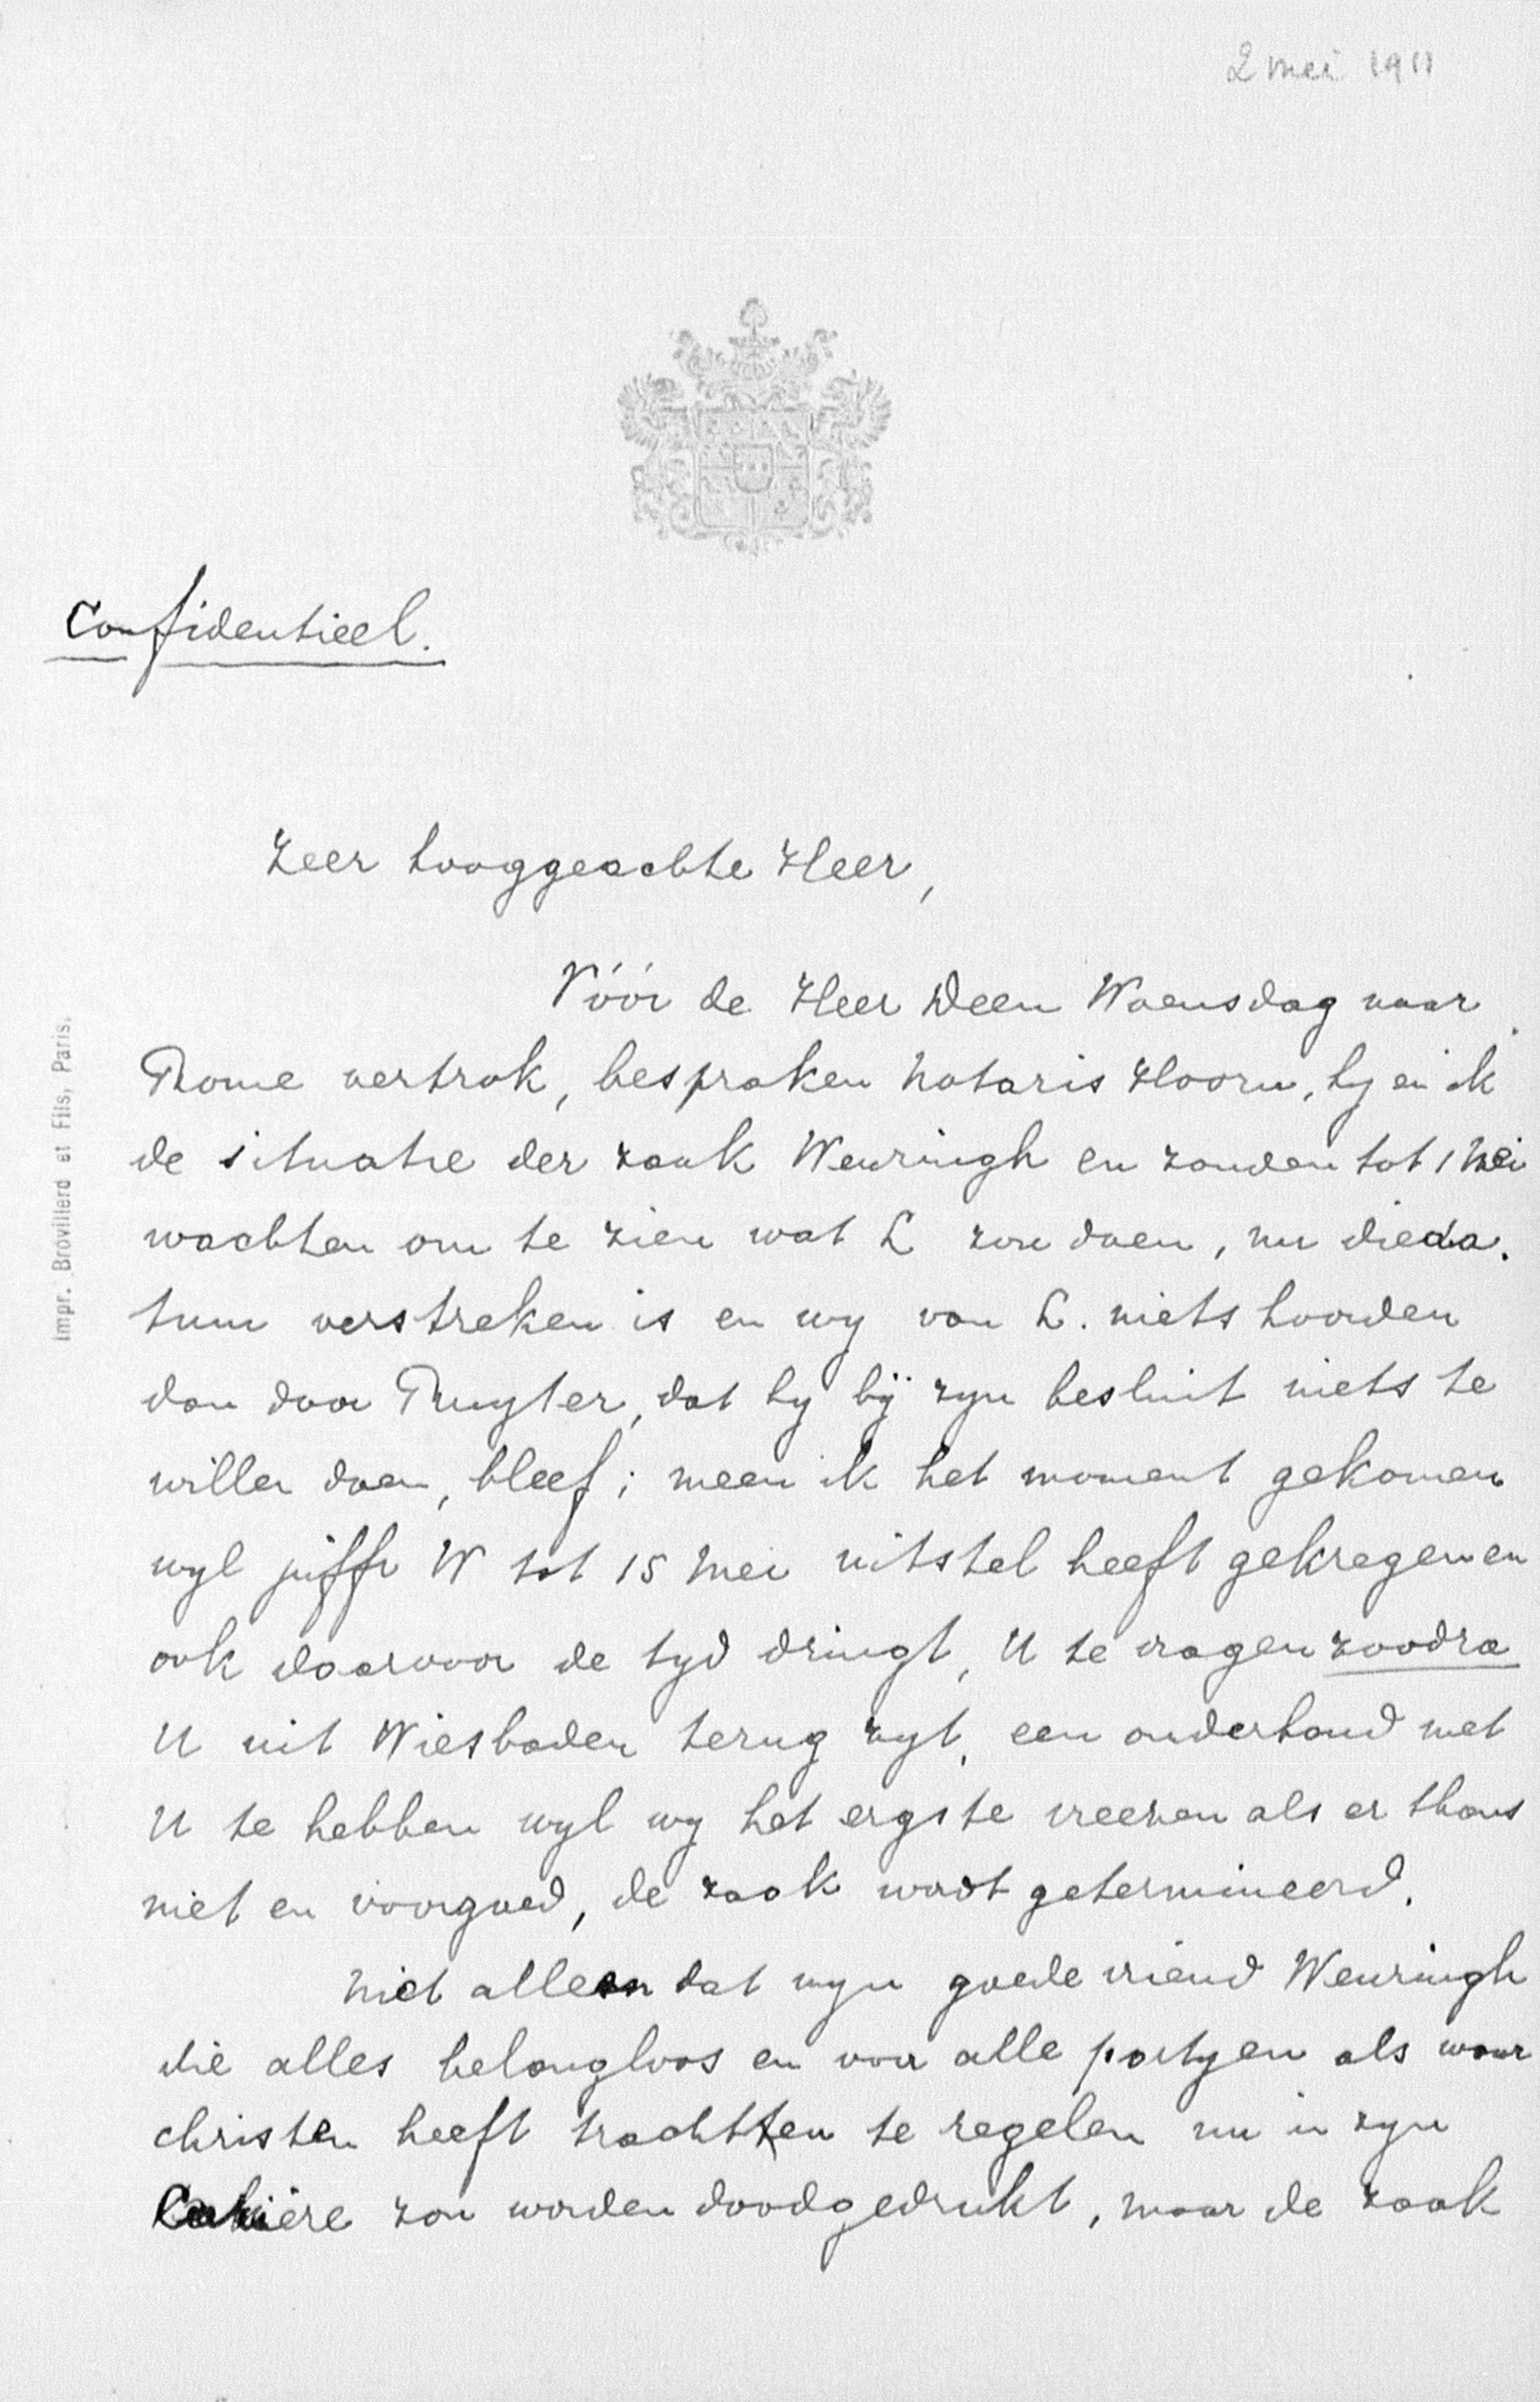 2 mei 1911
Confidentieel.
Zeer hooggeachte Heer,
Vóór de Heer Deen Woensdag naar
Rome vertrok, bespraken Notaris Hoorn, hy en ik
de situatie der zaak Weuringh en zouden tot 1 Mei
wachten om te zien wat L zou doen, nu die da.
tum verstreken is en wy van L. niets hoorden
dan door Ruyter, dat hy bij zyn besluit niets te
willen doen, bleef; meen ik het moment gekomen
wyl juffr W tot 15 Mei uitstel heeft gekregen en
ook daarvoor de tyd dringt, U te vragen zoodra
U uit Wiesbaden terug zyt, een onderhoud met
U te hebben wyl wy het ergste vreezen als er thans
niet en voorgoed, de zaak wordt getermineerd.
Niet alleen dat myn goede vriend Weuringh
die alles belangloos en voor alle partyen als waar
christen heeft trachtten te regelen nu in zyn
Carière zou worden doodgedrukt, maar de zaak
Impr. Brovillerd et Fils, Paris.